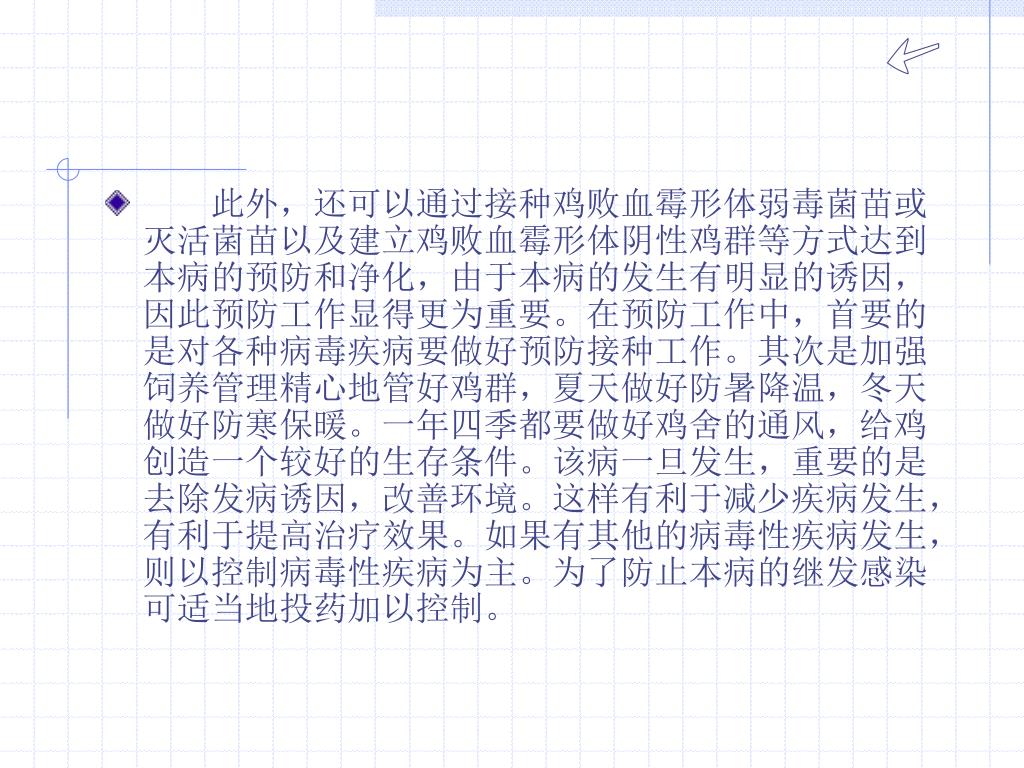 此外，还可以通过接种鸡败血霉形体弱毒菌苗或
灭活菌苗以及建立鸡败血霉形体阴性鸡群等方式达到
本病的预防和净化，由于本病的发生有明显的诱因，
因此预防工作显得更为重要。在预防工作中，首要的
是对各种病毒疾病要做好预防接种工作。其次是加强
饲养管理精心地管好鸡群，夏天做好防暑降温，冬天
做好防寒保暖。一年四季都要做好鸡舍的通风，给鸡
创造一个较好的生存条件。该病一旦发生，重要的是
去除发病诱因，改善环境。这样有利于减少疾病发生，
有利于提高治疗效果。如果有其他的病毒性疾病发生，
则以控制病毒性疾病为主。为了防止本病的继发感染
可适当地投药加以控制。